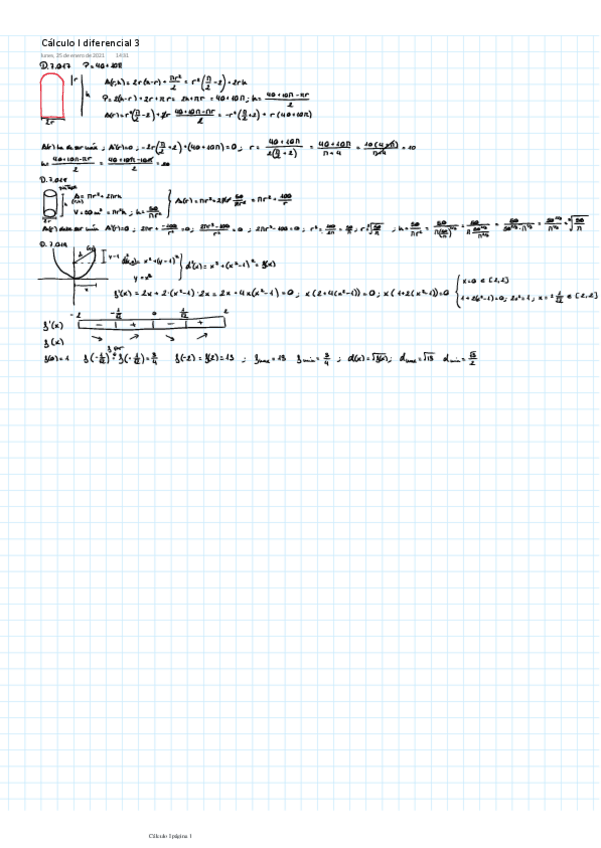 Cálculo I diferencial 3
lunes, 25 de enero de 2021 14:31
D.7.017 P=40+10π
A(r,h) = 2r(h-r) + πr²/2 = r²(π/2 - 2) + 2rh
P = 2(h-r) + 2r + πr = 2h + πr = 40+10π ; h = (40+10π-πr)/2
A(r) = r²(π/2 - 2) + 2r (40+10π-πr)/2 = -r²(π/2 + 2) + r(40+10π)
A'(r)=0 ; -2r(π/2 + 2) + (40+10π) = 0 ; r = (40+10π)/(2(π/2 + 2)) = (40+10π)/(π+4) = 10(4+π)/(π+4) = 10
h = (40+10π-πr)/2 = (40+10π-10π)/2 = 20
D.7.018
A = πr² + 2πrh
V = 50 m³ = πr²h ; h = 50/πr²
A(r) = πr² + 2πr 50/πr² = πr² + 100/r
A'(r)=0 ; 2πr + -100/r² = 0 ; (2πr³-100)/r² = 0 ; 2πr³-100=0 ; r³ = 100/2π = 50/π ; r = ∛(50/π) ; h = 50/πr²
D.7.019
y-1
d²(x,y) = x² + (y-1)²
y = x²
d²(x) = x² + (x²-1)² = f(x)
f'(x) = 2x + 2·(x²-1)·2x = 2x + 4x(x²-1) = 0 ; x(2+4(x²-1)) = 0 ; x(1+2(x²-1)) = 0
x=0 ∈ [-2,2]
1+2(x²-1)=0 ; 2x²=1 ; x = ± 1/√2 ∈ [-2,2]
-2 -1/√2 0 1/√2 2
f'(x) - + - +
f(x)
f(0)=1 f(-1/√2) = f(1/√2) = 3/4 f(-2) = f(2) = 13 ; fmax = 13 fmin = 3/4 ; d(x) = √f(x) ; dmax = √13 dmin = √3/2
Cálculo I página 1